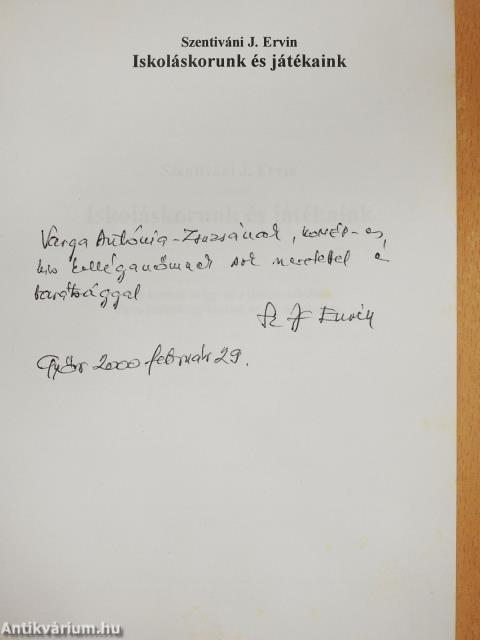 Szentiváni J. Ervin
Iskoláskorunk és játékaink
Szentiváni J. Ervin
Iskoláskorunk és játékaink
Varga Antónia-Zsuzsának,
kolléganőmnek sok szeretettel
barátsággal
Sz J Ervin
Győr 2000 február 29.
Antikvárium.hu